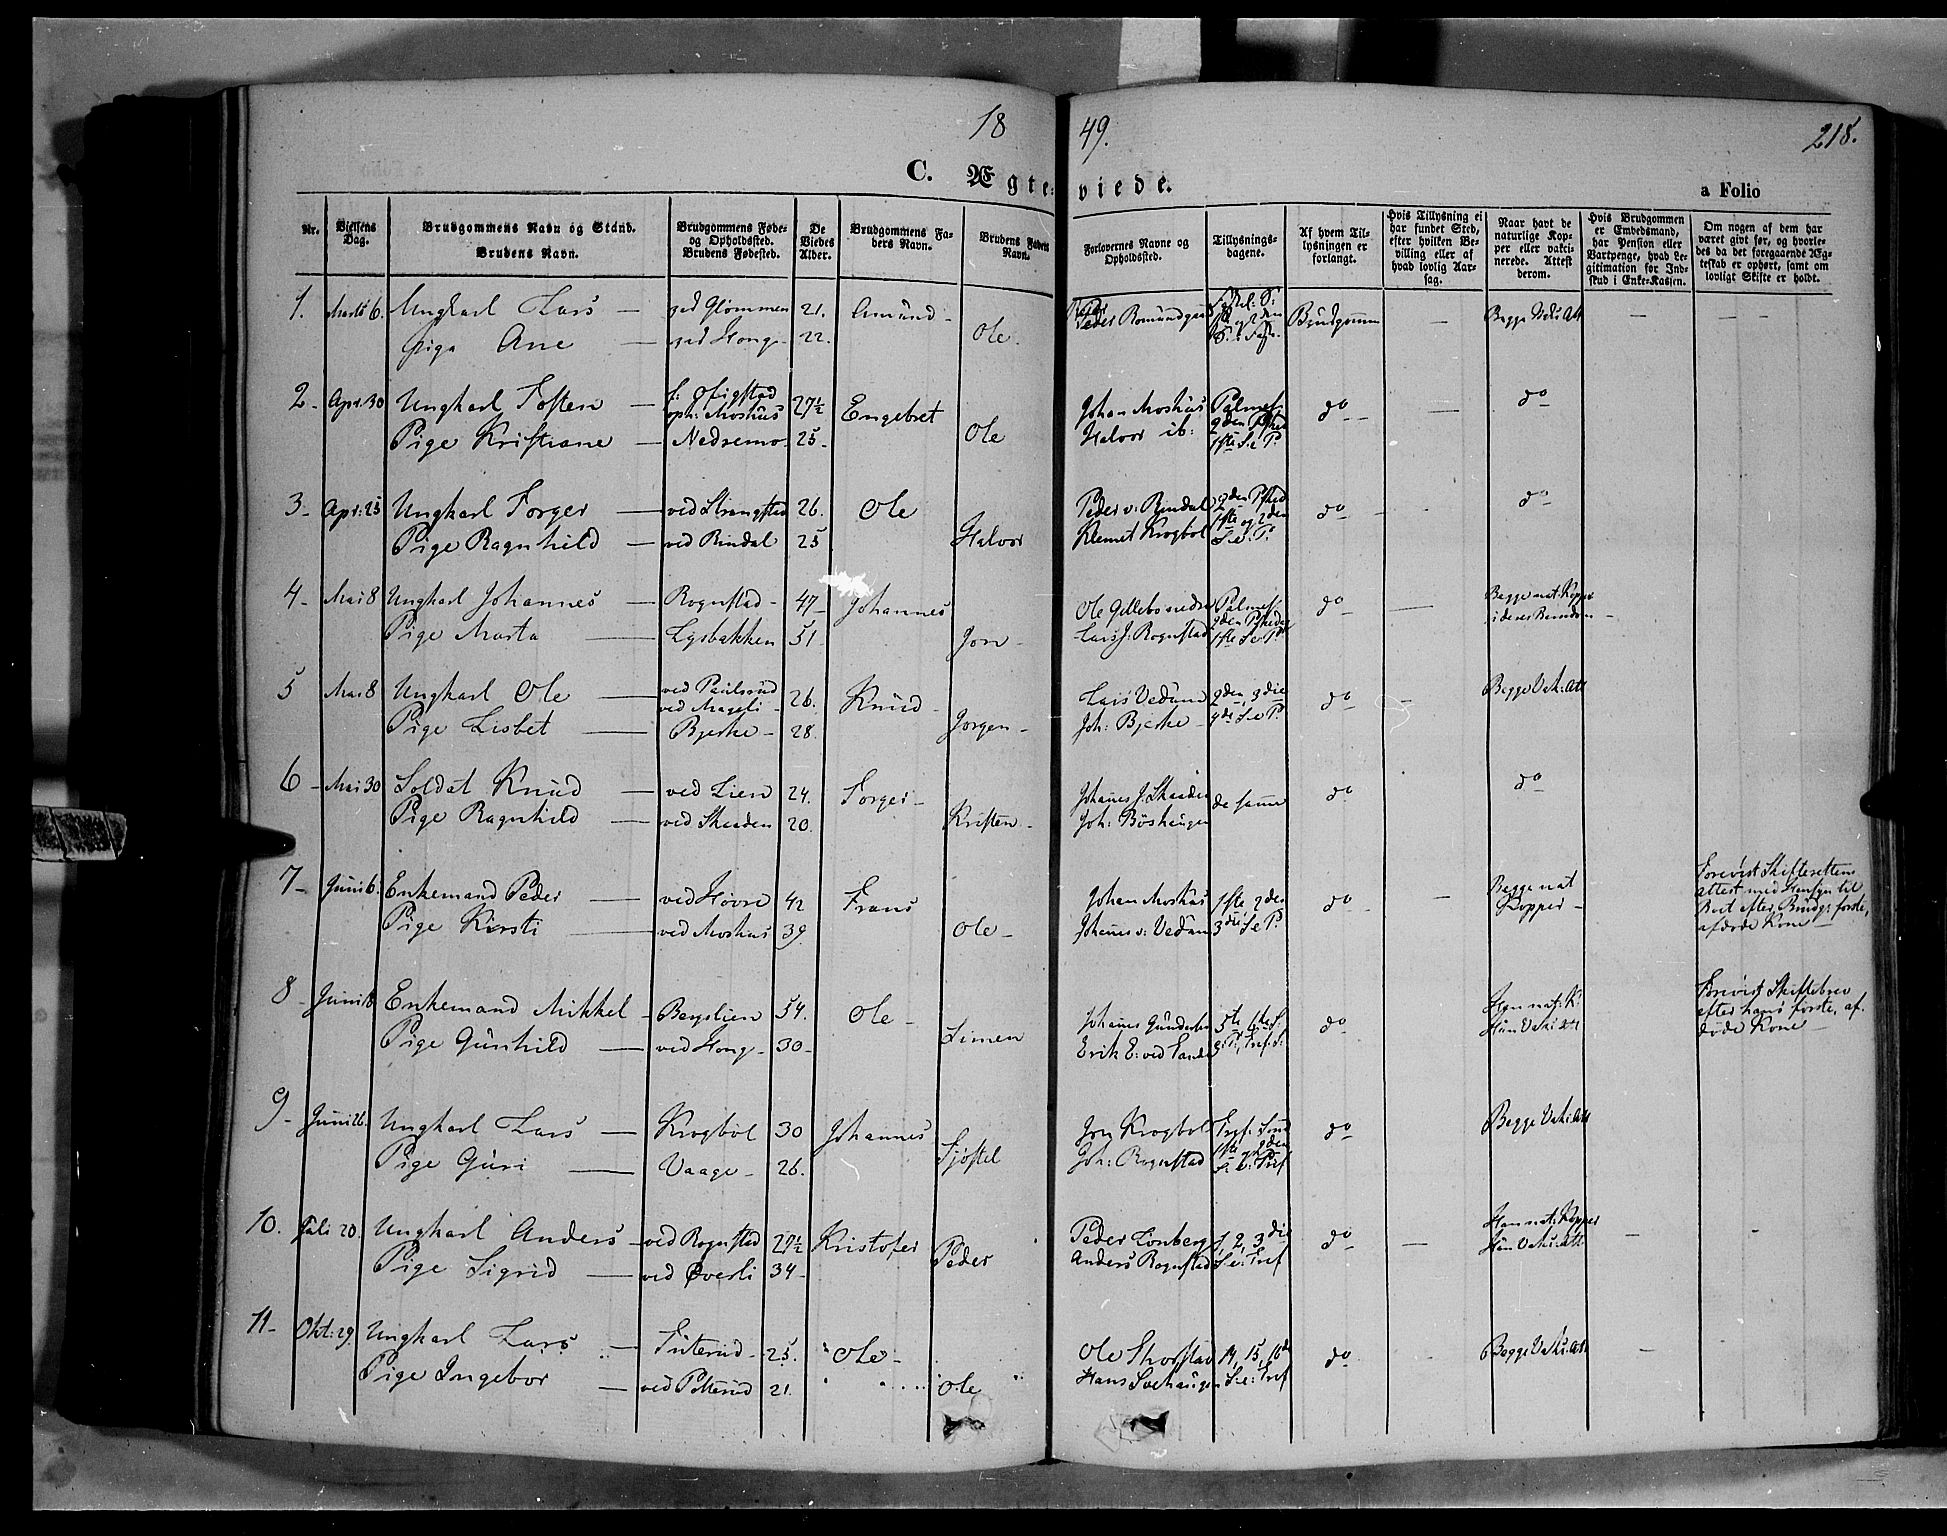 18 49. 218.
C. Ægteviede. a Folio
Nr. Vielsens Dag. Brudgommens Navn og Stand. Brudens Navn. Brudgommens Føde- og Opholdssted. Brudens Fødested. De Viedes Alder. Brudgommens Faders Navn. Brudens Faders Navn. Forlovernes Navne og Opholdssted. Tillysningsdagene. Af hvem Tillysningen er forlangt. Hvis Tillysning ei har fundet Sted, efter hvilken Bevilling eller af hvad lovlig Aarsag. Naar havt de naturlige Kopper eller vaccinerede. Attest derom. Hvis Brudgommen er Embedsmand, har Pension eller Vartpenge, hvad Legitimation for Indskud i Enke-Kassen. Om nogen af dem har været givt før, og hvorledes da det foregaaende Ægteskab er ophørt, samt om lovligt Skifte er holdt.
1. Marts 6. Ungkarl Lars — ved Glommen 21. Amund - Peder Romundgaard Brudgommen — Begge Vaks: Att — —
Pige Ane — ved Hong - 22. Ole.
2 - Apr: 30 Ungkarl Tosten — f: Ofigstad oph: Moshus 27½ Engebret Johan Moshus Palmes: do — do
Pige Kristiane — Nedremo - 25 - Ole Halvor ib: 2den Pskd 1ste S: e P:
3 - Apr: 25 Ungkarl Torger — ved Strangstad 26. Ole Peder v: Rindal 2den Pskd do - do
Pige Ragnhild — ved Rindal 25 Halvor Klemet Krogbøl 1ste og 2den S: e: P:
4 - Mai 8 Ungkarl Johannes — Rognstad - 47 - Johannes Ole Gillebo nedre Palmes: do — Begge nat: Kopper
Pige Marta — Lysbakken 51. Jon - Lars J: Rognstad 2den Pskedag 1ste S: e: P: i deres Barndom -
5 Mai 8 Ungkarl Ole — ved Paulsrud ved Mageli - 26. Knud - Lars Vedum 2den, 3die do - Begge Vak: Att
Pige Lisbet — Bjerke - 28. Jorgen - Joh: Bjerke - 4de S: e P:
6 - Mai 30 Soldat Knud — ved Lien 24. Torger - Johanes J. Skaaden de samme do do
Pige Ragnhild — ved Skaaden 20. Kristen - Joh: Bøshaugen
7 - Juni 6. Enkemand Peder — ved Hovre 42 Frans Johan Moshus 1ste 2den do - — Begge nat Kopper - Forevist Skifteretten attest med Hensyn til
Pige Kirsti — ved Moshus 39. Ole - Johanes v: Vedum 3die S: e P: Boet efter Brudg: første, afdøde Kone —
8 - Juni 18 Enkemand Mikkel - Bergslien 54. Ole - Johanes Gunderson 5te do Han nat: K: Forevist Skiftebrev
Pige Gunhild — ved Hong - 30 - Simen Erik E: ved Sande Hun Vaks: Att efter hans første, afdøde Kone —
9 - Juni 26. Ungkarl Lars — Krogbøl 30 Johannes Jon Krogbøl Tref: Sønd do Begge Vaks: Att
Pige Guri — Vaage - 26. Sjøstel Joh: Rognstad 1ste og 2den S: e: Tref
10. Juli 20. Ungkarl Anders - ved Rognstad 27½ Kristofer Peder Lonberg 1, 2, 3die do — Han nat: Kopper - -
Pige Sigrid — ved Øverli 34 - Peder Anders Rognstad S: e: Tref Hun Vaks: Att
11 - Okt: 29 Ungkarl Lars — 25. Ole - Ole Skorstad 14, 15, 16de do - Begge Vaks: Att -
Pige Ingebor — ved Potterud 21. Ole Hans Svehaugen S: e: Tref